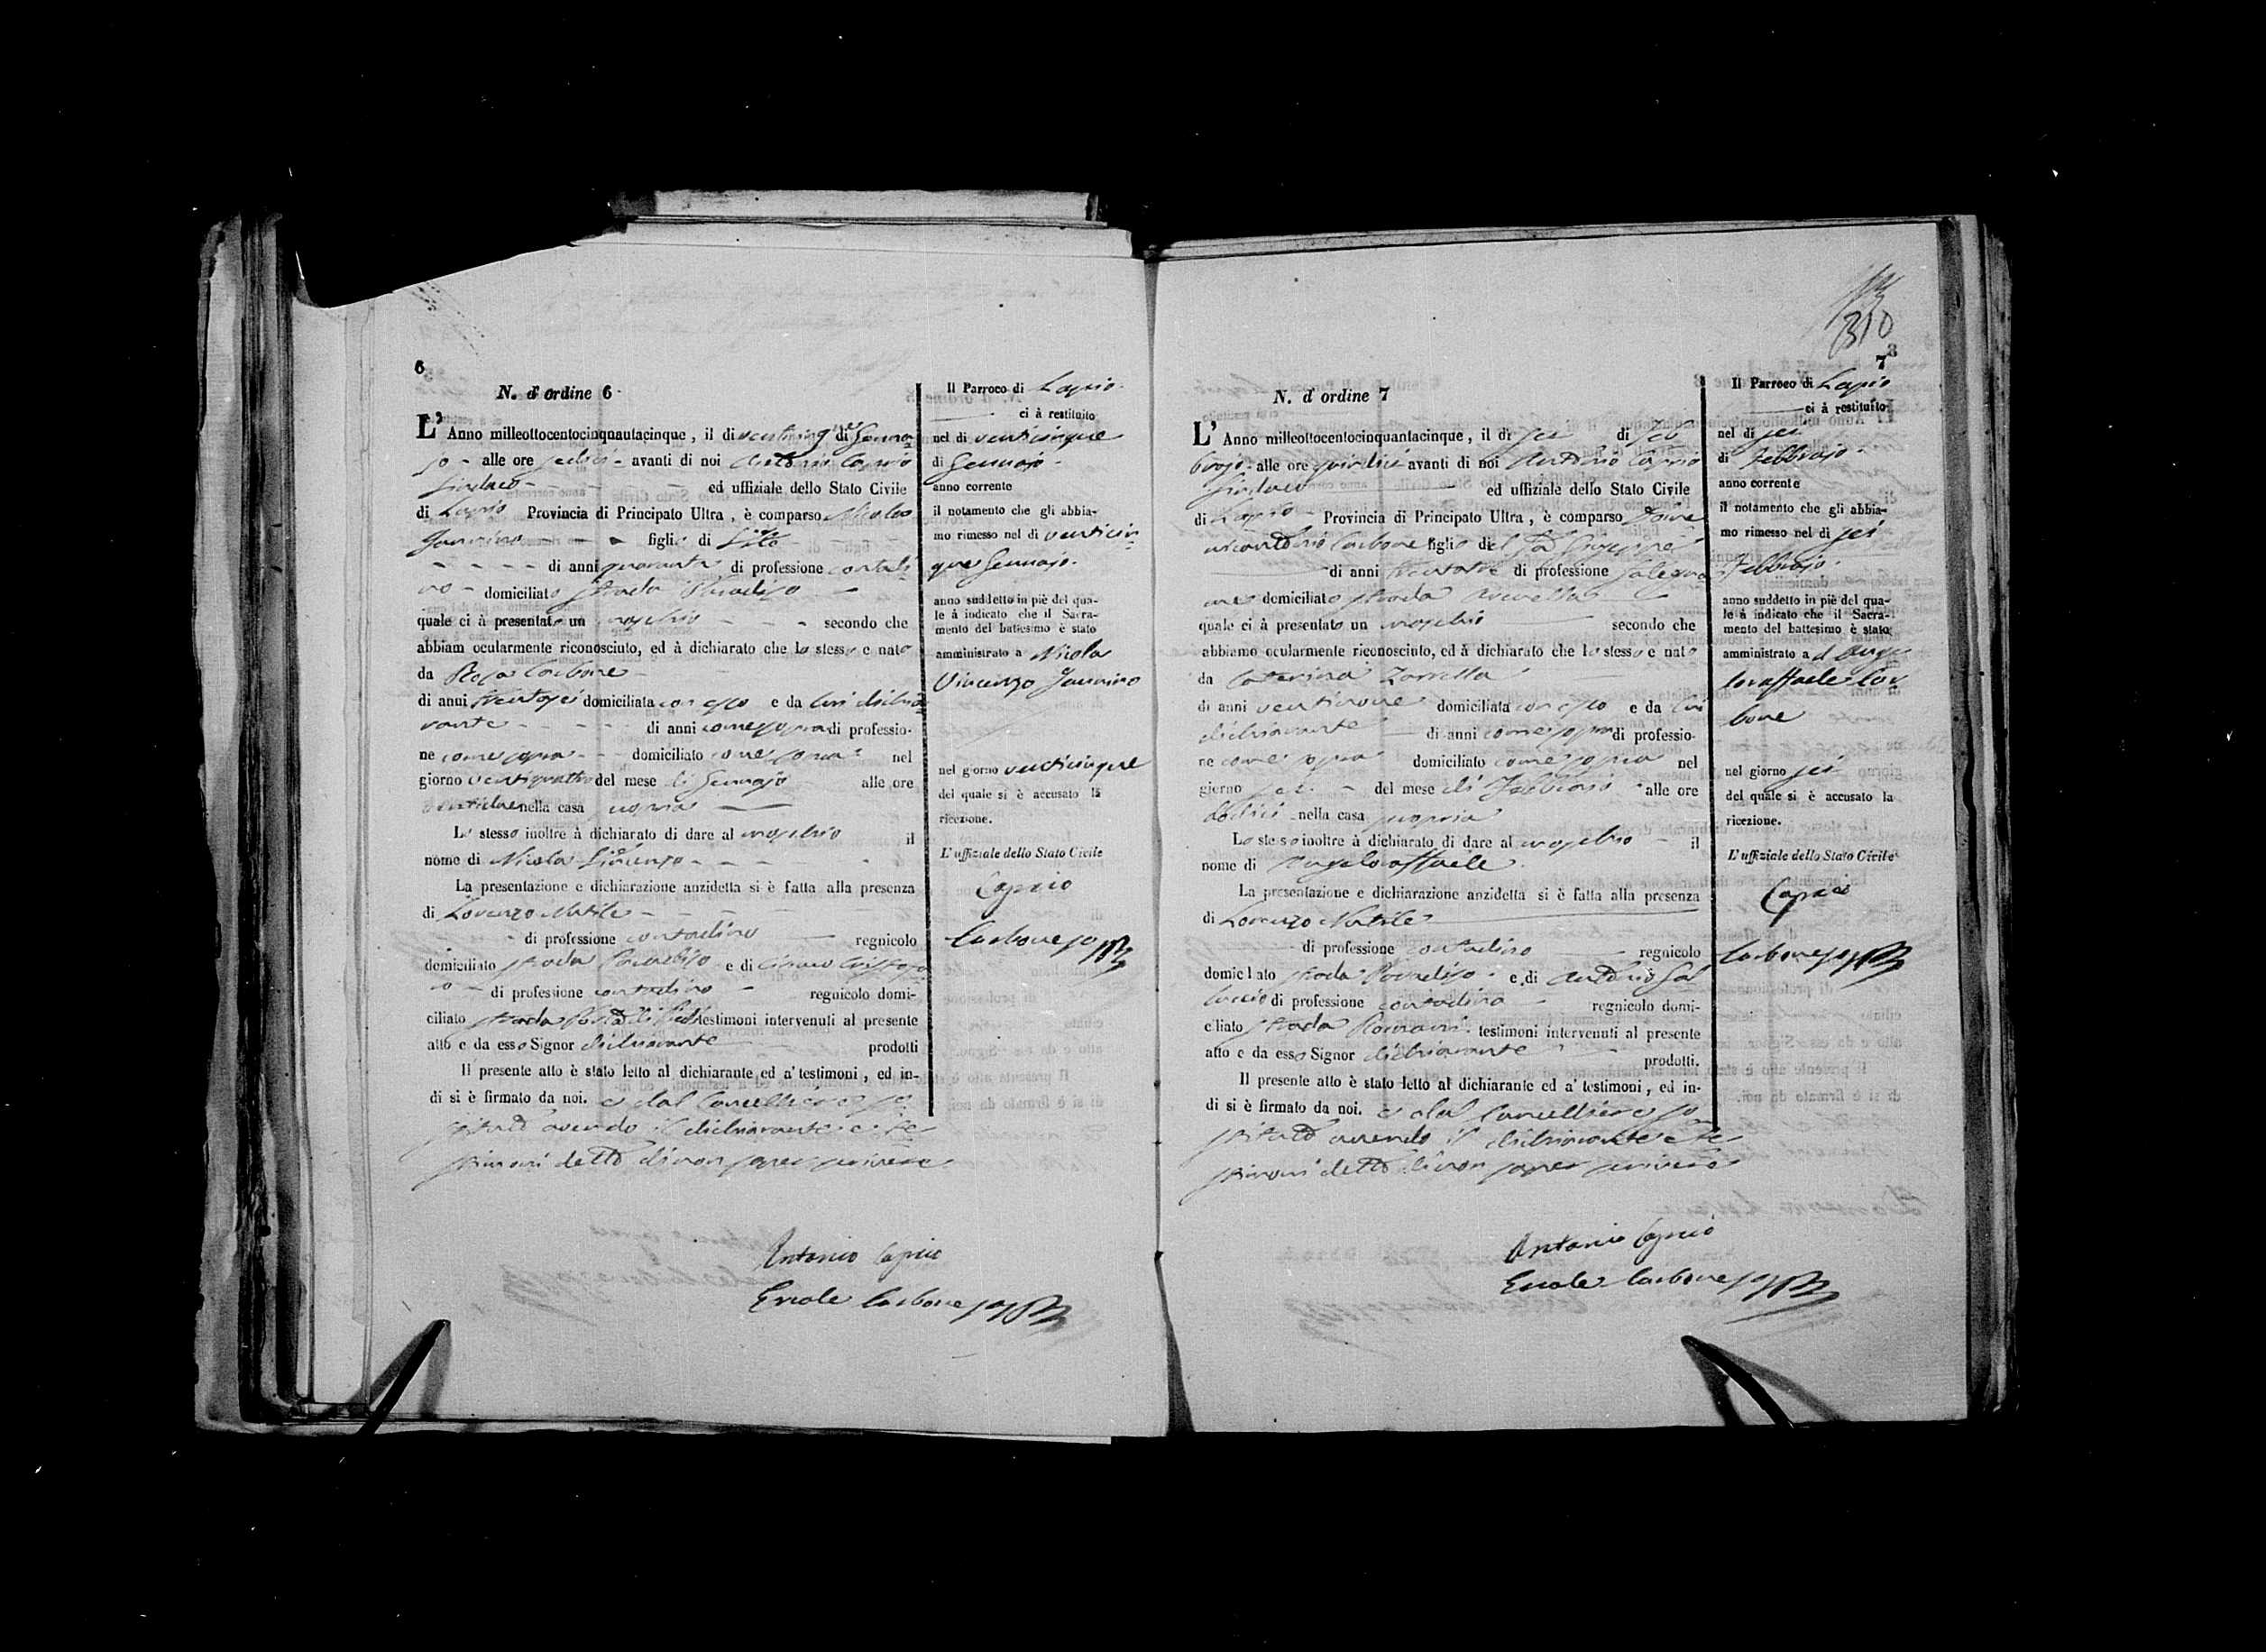 6
N. d'ordine 6
L' Anno milleottocentocinquantacinque, il di venticinq di Genna=
jo alle ore sedici avanti di noi Antonio Caprio
Sindaco ed uffiziale dello Stato Civile
di Lapio Provincia di Principato Ultra, è comparso Nicola
figlio di
di anni quaranta di professione contadi=
no domiciliato strada Paradiso
quale ci à presentato un maschio secondo che
abbiam ocularmente riconosciuto, ed à dichiarato che lo stesso e nato
da Rosa Carbone
di anni trentasei domiciliata con esso e da lui dichia=
rante di anni come sopra di professio-
ne come sopra domiciliato come sopra nel
giorno ventiquattro del mese di Gennajo alle ore
nella casa propria
Lo stesso inoltre à dichiarato di dare al maschio il
nome di Nicola Vincenzo
La presentazione e dichiarazione anzidetta si è fatta alla presenza
di Lorenzo Natile
di professione contadino regnicolo
domiciliato strada Paradiso e di Ciriaco
di professione contadino regnicolo domi-
ciliato strada testimoni intervenuti al presente
atto e da esso Signor dichiarante prodotti
Il presente atto è stato letto al dichiarante ed a' testimoni, ed in-
di si è firmato da noi. e dal Cancelliere so
stituto avendo il dichiarante e te=
stimoni detto di non saper scrivere
Antonio Caprio
Ercole Carbone
Il Parroco di Lapio
ci à restituito
nel di venticinque
di Gennajo
anno corrente
il notamento che gli abbia-
mo rimesso nel di venticin=
que Gennajo.
anno suddetto in piè del qua-
le à indicato che il Sacra-
mento del battesimo è stato
amministrato a Nicola
Vincenzo
nel giorno venticinque
del quale si è accusato la
ricezione.
L'uffiziale dello Stato Civile
Caprio
Carbone
310
7
N. d'ordine 7
L' Anno milleottocentocinquantacinque, il di sei di Feb
brajo alle ore quindici avanti di noi Antonio Caprio
Sindaco ed uffiziale dello Stato Civile
di Lapio Provincia di Principato Ultra, è comparso Dome
nicantonio Carbone figlio del fu Giuseppe
di anni di professione Falegna
me domiciliato strada
quale ci à presentato un maschio secondo che
abbiamo ocularmente riconosciuto, ed à dichiarato che lo stesso e nato
da Caterina Zarrella
di anni ventinove domiciliata con esso e da lui
dichiarante di anni come sopra di professio-
ne come sopra domiciliato come sopra nel
giorno sei del mese di Febbrajo alle ore
dodici nella casa propria
Lo stesso inoltre à dichiarato di dare al maschio il
nome di Angeloraffaele
La presentazione e dichiarazione anzidetta si è fatta alla presenza
di Lorenzo Natile
di professione contadino regnicolo
domiciliato strada Paradiso e di Antonio Gal
luccio di professione contadino regnicolo domi-
ciliato strada testimoni intervenuti al presente
atto e da esso Signor dichiarante prodotti.
Il presente atto è stato letto al dichiarante ed a' testimoni, ed in-
di si è firmato da noi. e dal Cancelliere so
stituto avendo il dichiarante e te=
stimoni detto di non saper scrivere
Antonio Caprio
Ercole Carbone
Il Parroco di Lapio
ci à restituito
nel di sei
di Febbrajo
anno corrente
il notamento che gli abbia-
mo rimesso nel di sei
Febbrajo.
anno suddetto in piè del qua-
le à indicato che il Sacra-
mento del battesimo è stato
amministrato ad Ange
loraffaele Car
bone
nel giorno sei
del quale si è accusato la
ricezione.
L'uffiziale dello Stato Civile
Caprio
Carbone